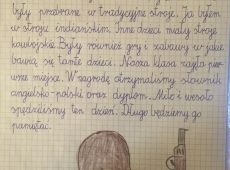 były przebrane w tradycyjne stroje. Ja byłem
w stroju indiańskim. Inne dzieci miały stroje
kowbojskie. Były również gry i zabawy w jakie
bawią się tamte dzieci. Nasza klasa zajęła pier-
wsze miejsce. W nagrodę otrzymaliśmy słownik
angielsko-polski oraz dyplom. Miło i wesoło
spędziliśmy ten dzień. Długo będziemy go
pamiętać.